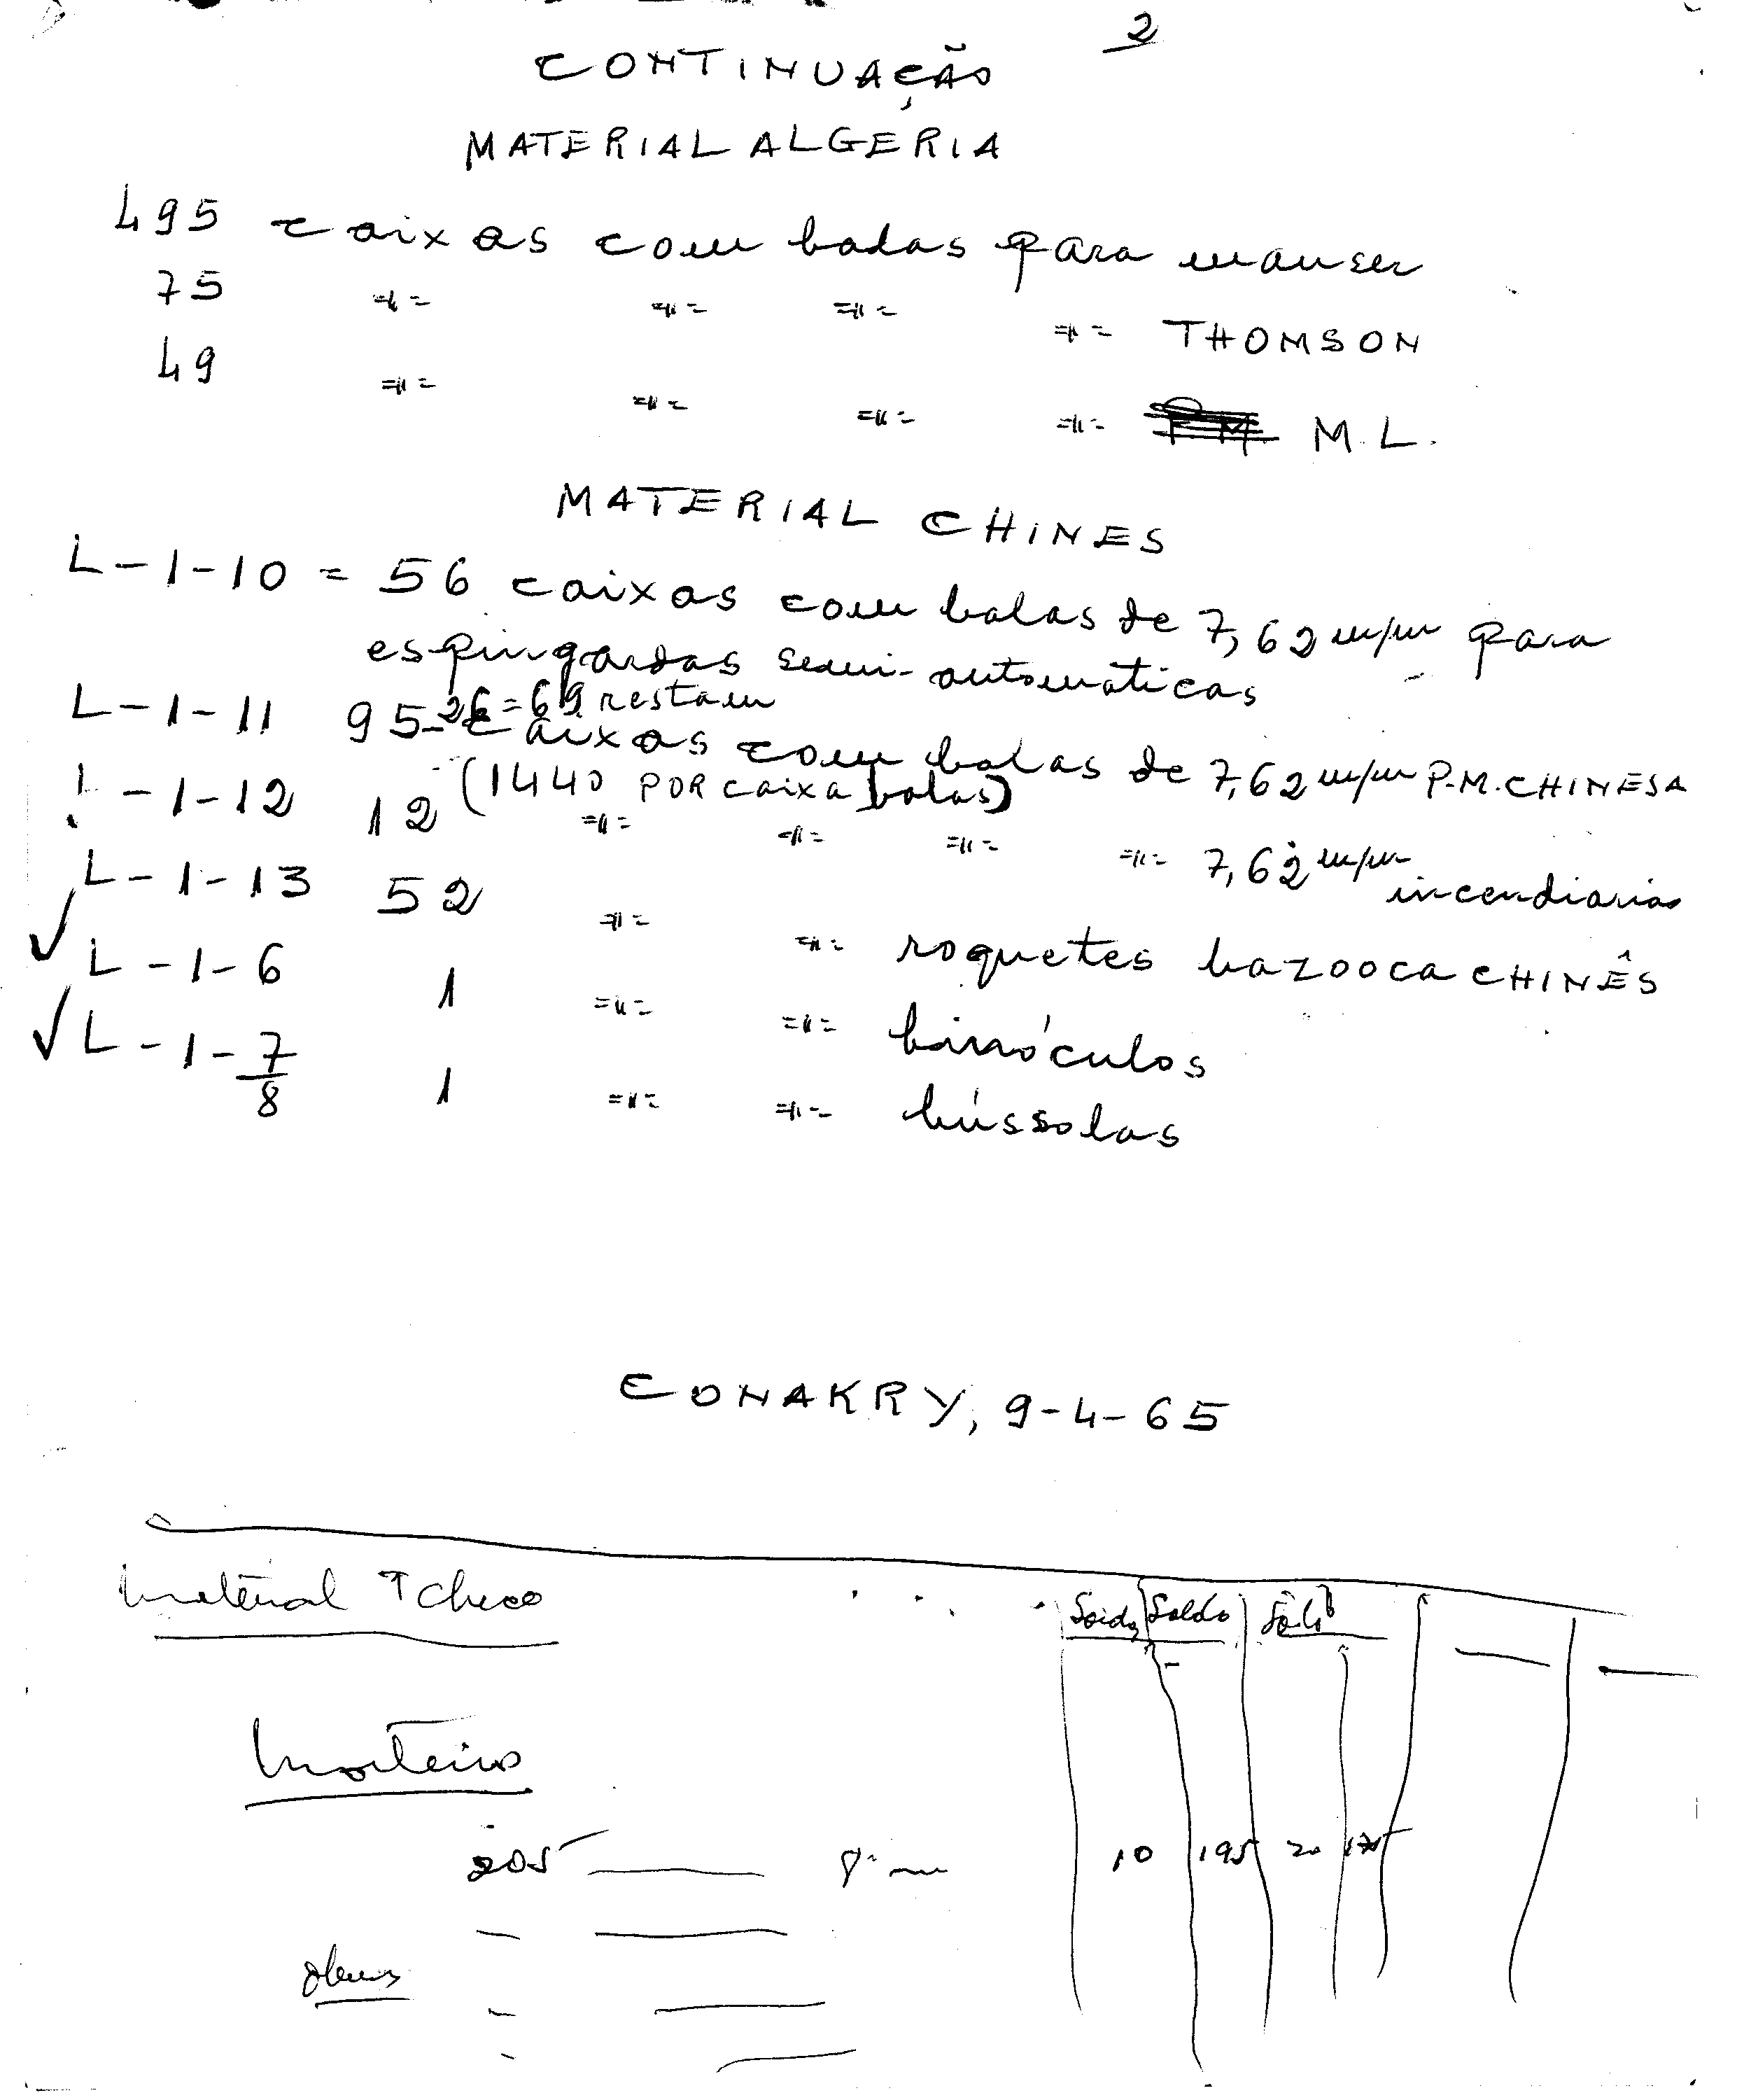 2
CONTINUAÇÃO
MATERIAL ALGERIA
495 caixas com balas para mauser
75 =11= =11= =11= =11= THOMSON
49 =11= =11= =11= =11= P.M. M.L.
MATERIAL CHINES
L-1-10 = 56 caixas com balas de 7,62 m/m para
espingardas semi-automaticas
26=69 restam
L-1-11 95- caixas com balas de 7,62 m/m P.M. CHINESA
(1440 POR caixa balas)
L-1-12 12 =11= =11= =11= =11= 7,62 m/m incendiarias
L-1-13 52 =11= =11= roquetes bazooca CHINÊS
L-1-6 1 =11= =11= binóculos
L-1-7/8 1 =11= =11= bússolas
CONAKRY, 9-4-65
Material Tcheco Saida Saldo
Morteiros
205 10 195 20 175